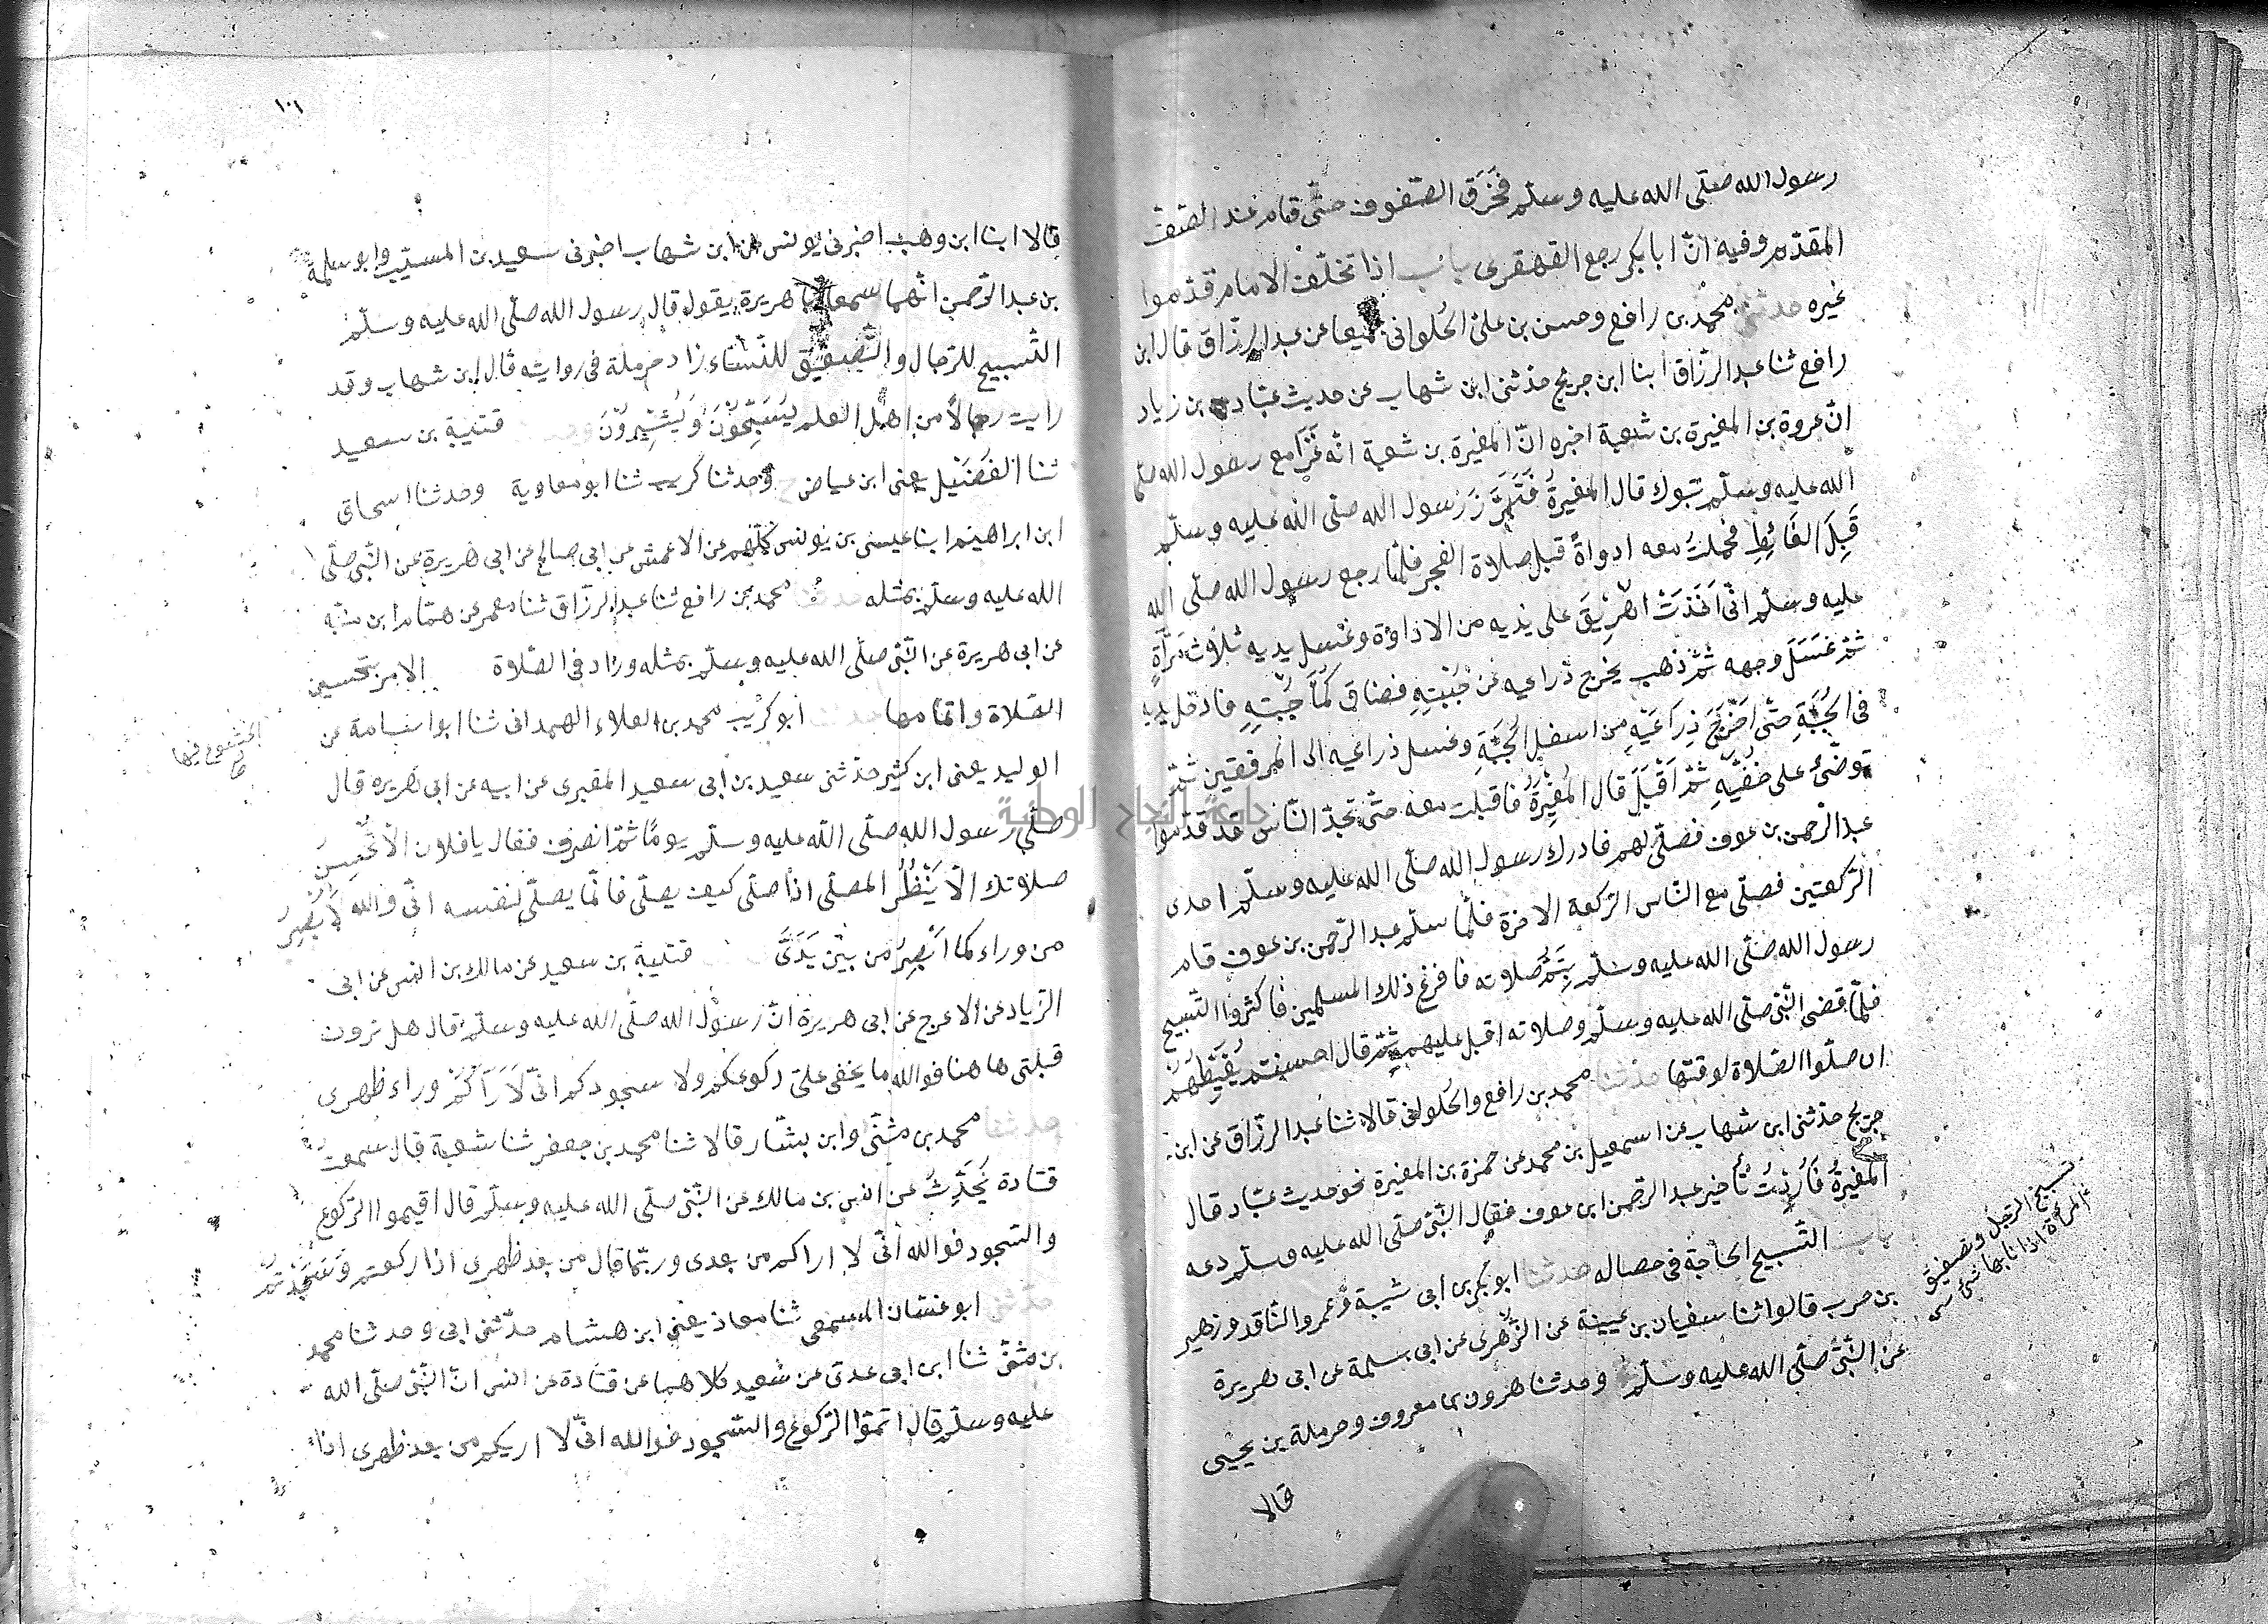 رسول الله صلّى الله عليه وسلّم فخَرَق الصّفوف حتّى قام عند الصّف
المقدّم وفيه انّ ابا بكر رجع القهقرى باب اذا تخلّف الامام قدّموا
غيره حدثنى محمّد بن رافع وحسن بن علىّ الحُلوانى جميعا عن عبد الرزّاق قال ابن
رافع ثنا عبد الرزّاق ابنا ابن جريج حدّثنى ابن شهاب عن حديث عبّاد بن زياد
انّ عروة بن المغيرة بن شعبة اخبره انّ المغيرة بن شعبة انّه غَزَا مع رسول الله صلّى
الله عليه وسلّم تبوك قال المغيرةُ فَتَبَرَّزَ رسول الله صلّى الله عليه وسلّم
قِبَلَ الغَائِطِ فحملتُ معه ادواةً قبل صلاة الفجر فلمّا رجع رسول الله صلّى الله
عليه وسلّم انّى اَخَذتْ اُهْرِيقَ على يديه من الاداوة وغسل يديه ثلاث مَرّاةٍ
ثمّ غَسَلَ وجهه ثمّ ذهب يخرج ذراعيه عن جُبّتِهِ فضاق كُمّا جُبّتِهِ فادخل يديه
فى الجُبّةِ حتّى اَخْرَجَ ذِرَاعَيْهِ من اسفل الجُبّةِ وغسل ذراعيه الى المرفقين ثمّ
توضّئ على خفّيْهِ ثمّ اَقْبَلَ قال المُغِيْرَةُ فاقبلت معه حتّى تجدّ النّاس قد قدّموا
عبد الرّحمن بن عوف فصلّى لهم فادرك رسول الله صلّى الله عليه وسلّم احدى
الرّكعتين فصلّى مع النّاس الرّكعة الاخرة فلمّا سلّم عبد الرّحمن بن عوف قام
رسول الله صلّى الله عليه وسلّم يُتِمُّ صلاته فافزع ذلك المسلمين فاكثروا التّسبيح
فلمّا قضى النّبّى صلّى الله عليه وسلّم وصلاته اقبل عليهم ثمّ قال احسنتم يُغَبِّطُهُمْ
ان صلّوا الصّلاة لوقتها حدّثنا محمد بن رافع والحُلوانى قالا ثنا عبد الرزّاق عن ابن
جريج حدّثنى ابن شهاب عن اسمعيل بن محمد عن حمزة بن المغيرة نحو حديث عبّاد قال
المغيرةُ فَاَرَدْتُ تأخير عبد الرّحمن ابن عوف فقال النّبّى صلّى الله عليه وسلّم دعه
باب التّسبيح الحاجة فى حصاله حدّثنا ابو بكر بن ابى شيبة وعمرو النّاقد وزهير
بن حرب قالوا ثنا سفيان بن عيينة عن الزّهرى عن ابى سلمة عن ابى هريرة
عن النّبّى صلّى الله عليه وسلّم وحدثنا هرون بن معروف وحرملة بن يحيى
قالا
تسبيح الرّجل وتصفيق
المرأة اذا نابها شئ
١٠١
قالا ابنا ابن وهب اخبرنى يونس عن ابن شهاب اخبرنى سعيد بن المسيّب وابو سلمة
بن عبد الرّحمن انّهما سمعا ابا هريرة يقول قال رسول الله صلّى الله عليه وسلّم
التّسبيح للرّجال والتّصفيق للنّسّاء زاد حرملة فى روايته قال ابن شهاب وقد
رايت رجالاً من اهل العلم يُسَبِّحُوْنَ وَيُشِيْرُوْنَ قتيبة بن سعيد
ثنا الفُضَيْل يعنى ابن عياض وحدثنا كريب ثنا ابو معاوية وحدثنا اسحاق
ابن ابراهيم ابنا عيسى بن يونس كلّهم عن الاعمش عن ابى صالح عن ابى هريرة عن النّبّى صلّى
الله عليه وسلّم بمثله حدثنا محمد بن رافع ثنا عبد الرزّاق ثنا معمر عن همّام ابن منبّه
عن ابى هريرة عن النّبّى صلّى الله عليه وسلّم بمثله وزاد فى الصّلاة الامر بتحسين
الصّلاة واتمّامها حدثنا ابو كريْب محمد بن العلاء الهمدانى ثنا ابو اسامة عن
الخشوع فيها
الوليد يعنى ابن كثير حدّثنى سعيد بن ابى سعيد المقبرى عن ابيه عن ابى هريرة قال
صلّى رسول الله صلّى الله عليه وسلّم يومًا ثمّ انصرف فقال يا فلان الا تُحْسِنُ
صلاتك الّا يَنْظُرُ المصلّى اذا صلّى كيف يصلّى فانّما يصلّى لنفسه انّى والله لَاُبْصِرُ
من وراء كما اُبْصِرُ من بيْن يَدَىَّ قتيبة بن سعيد عن مالك بن انس عن ابى
الزياد عن الاعرج عن ابى هريرة انّ رسول الله صلّى الله عليه وسلّم قال هل ترون
قبلتى ها هنا فوالله ما يخفى علىّ ركوعكم ولا سجودكم انّى لَاَرَاكُمْ وراء ظهرى
حدثنا محمد بن مثنّى وابن بشّار قالا ثنا محمد بن جعفر ثنا شعبة قال سمعت
قتادة يُحَدِّثُ عن انس بن مالك عن النّبّى صلّى الله عليه وسلّم قال اقيموا الرّكوع
والسّجود فوالله انّى لا اراكم من بعدى وربّما قال من بعد ظهرى اذا ركعتم وَسَجَدْتُمْ
حدّثنى ابو غسّان المسمعى ثنا معاذ يعنى ابن هشام حدّثنى ابى وحدثنا محمد
بن مثنّى ثنا ابن ابى عدىّ عن سعيد كلاهما عن قتادة عن انس انّ النّبّى صلّى الله
عليه وسلّم قال اتمّوا الرّكوع والسّجود فوالله انّى لا اريكم من بعد ظهرى اذا
جامعة النجاح الوطنية